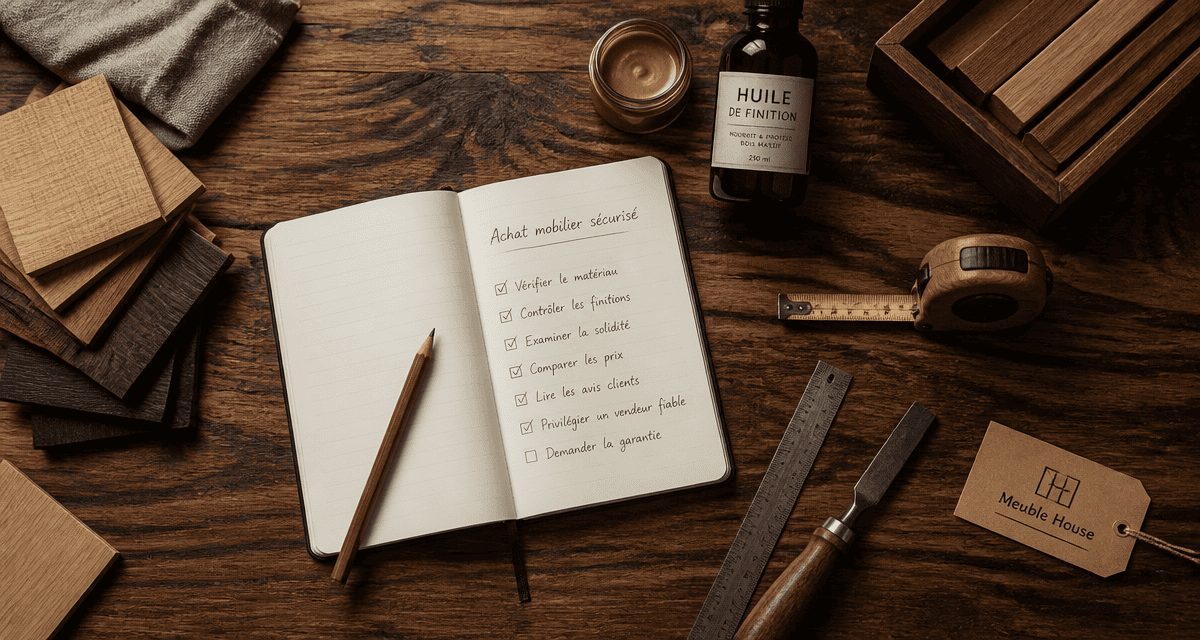 Achat mobilier sécurisé
Vérifier le matériau
Contrôler les finitions
Examiner la solidité
Comparer les prix
Lire les avis clients
Privilégier un vendeur fiable
Demander la garantie
HUILE
DE FINITION
250 ml
Meuble House